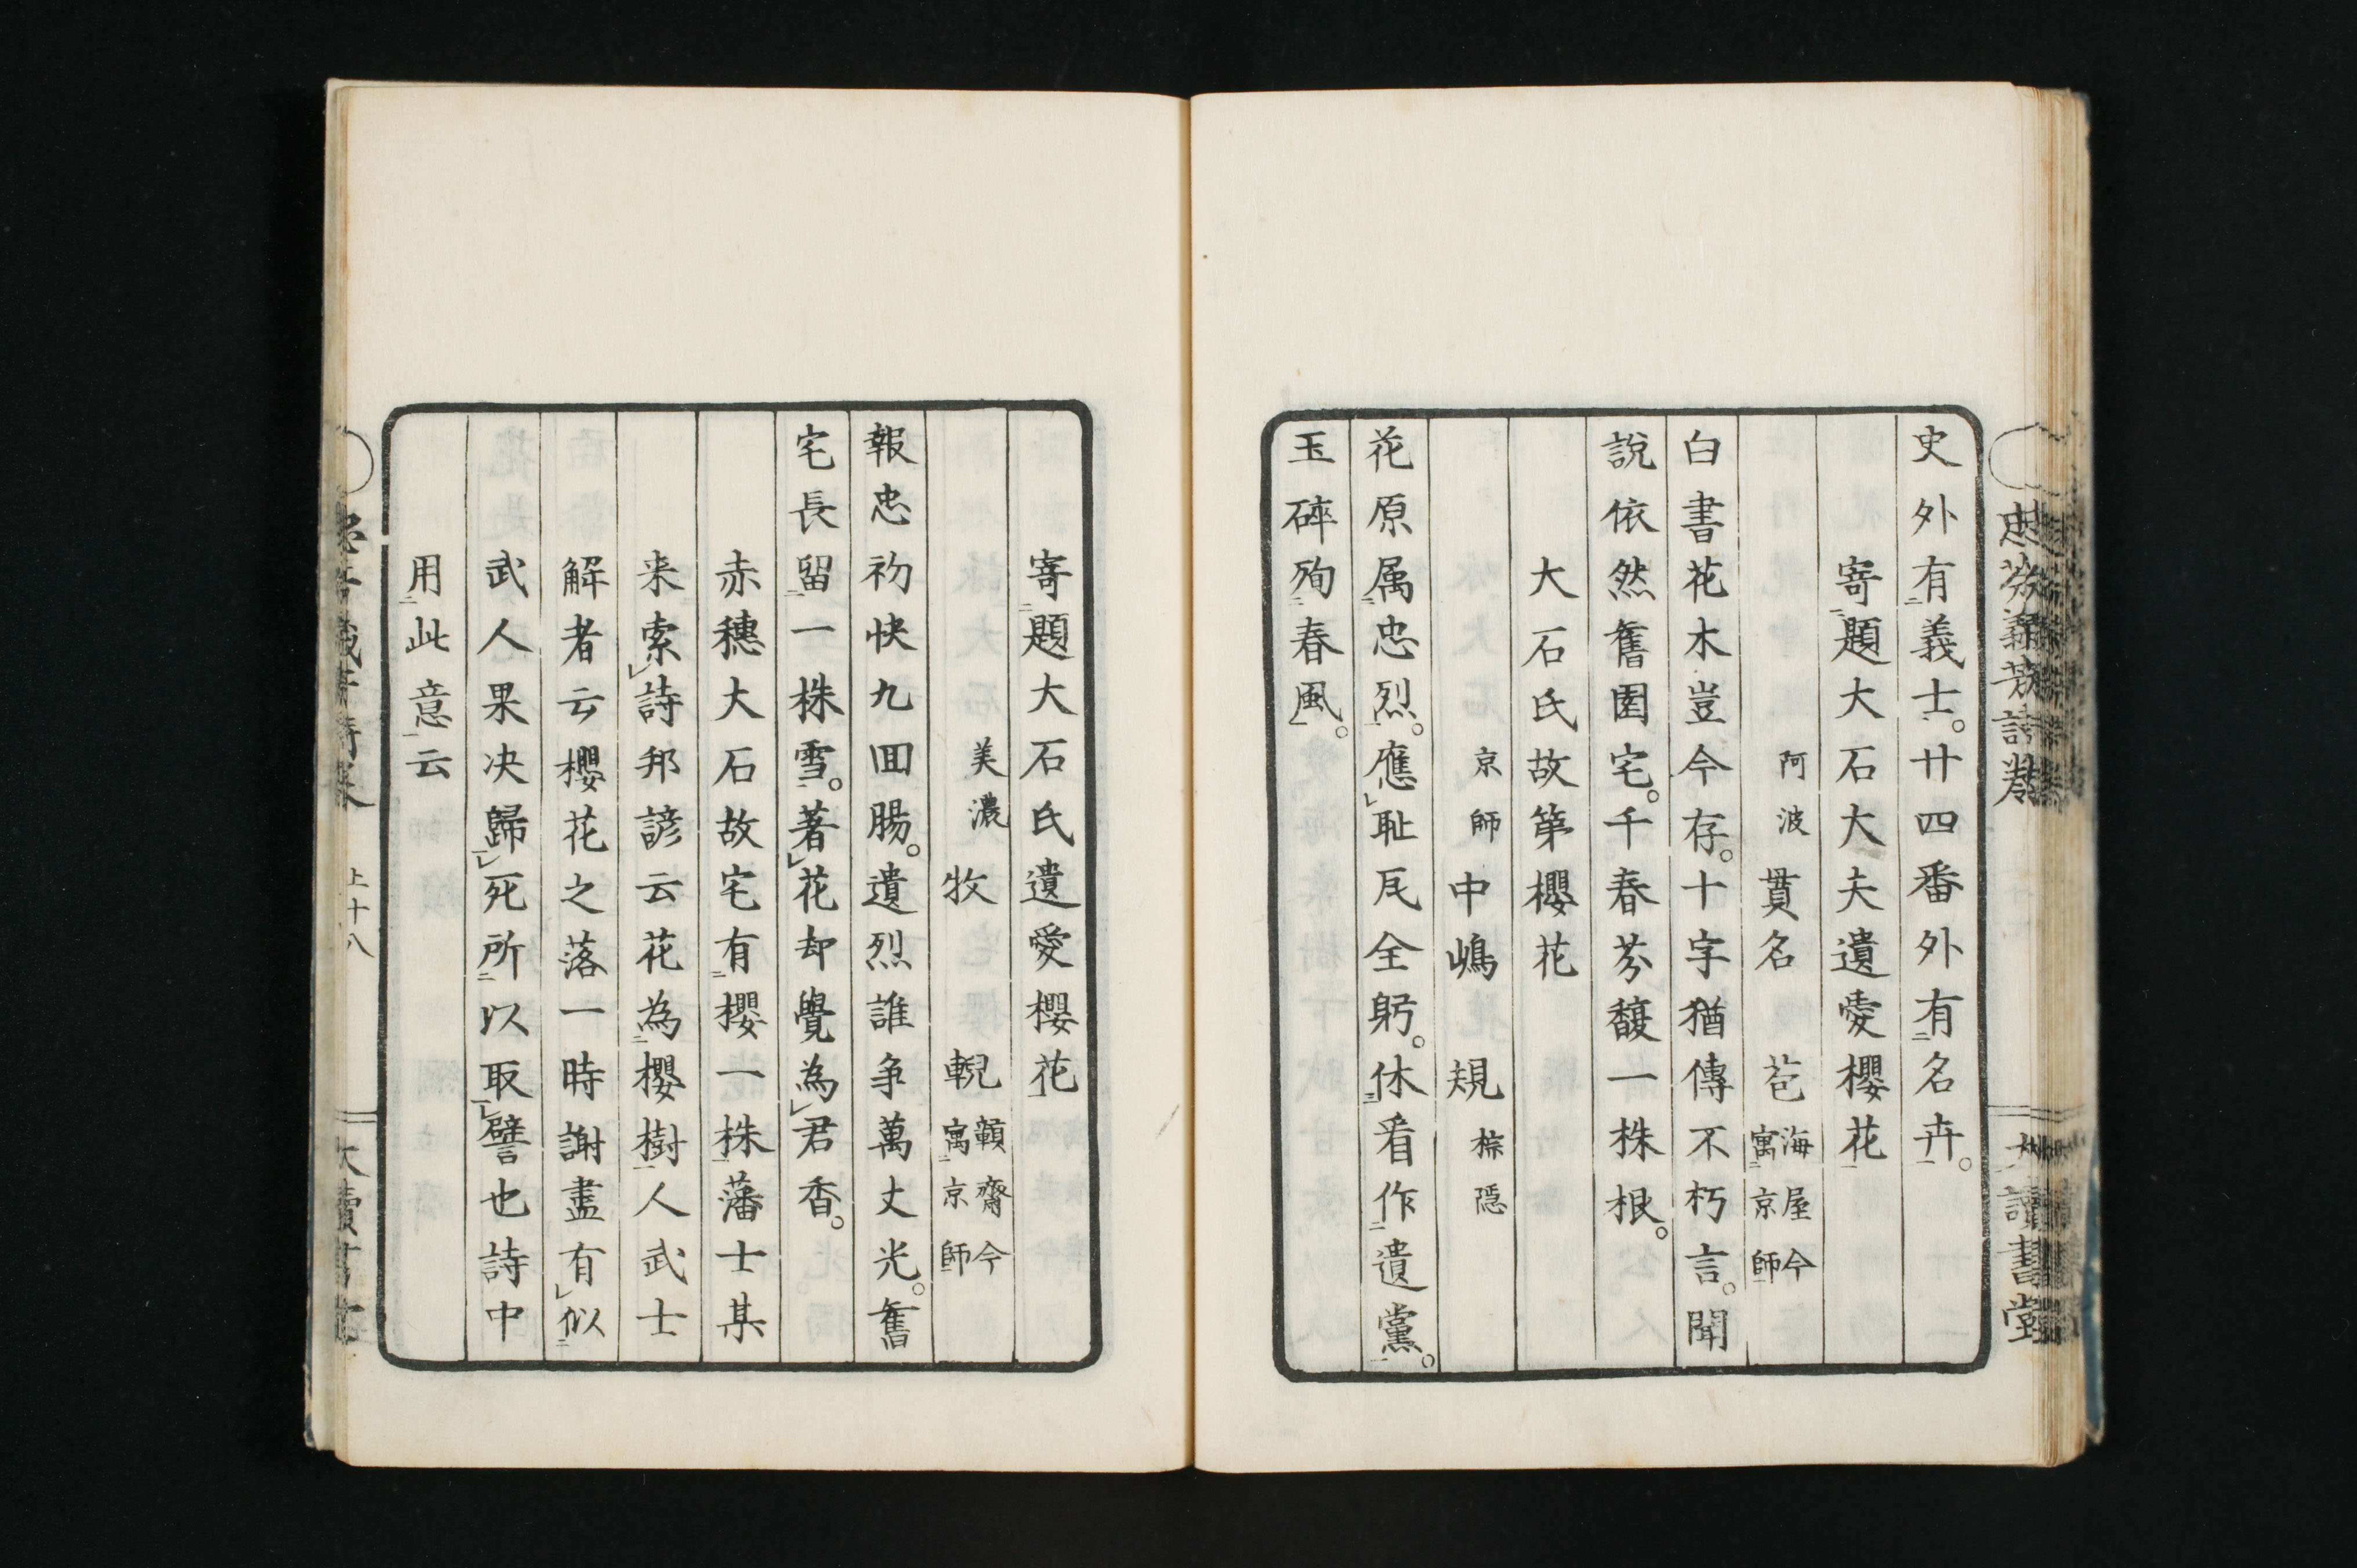 史外有義士。廿四番外有名卉。
寄題大石大夫遺愛櫻花
阿波 貫名 苞 海屋今寓京師
白書花木豈今存。十字猶傳不朽言。聞
說依然舊園宅。千春芬馥一株根。
大石氏故第櫻花
京師 中嶋 規 棕隱
花原属忠烈。應耻瓦全躬。休看作遺黨。
玉碎殉春風。
忠芬義芳詩卷
大讀書堂
寄題大石氏遺愛櫻花
美濃 牧 輗 贛齋今寓京師
報忠初快九回腸。遺烈誰争萬丈光。舊
宅長留一株雪。著花却覺為君香。
赤穗大石故宅有櫻一株藩士某
来索詩邦諺云花為櫻樹人武士
解者云櫻花之落一時謝盡有似
武人果决歸死所以取譬也詩中
用此意云
上十八